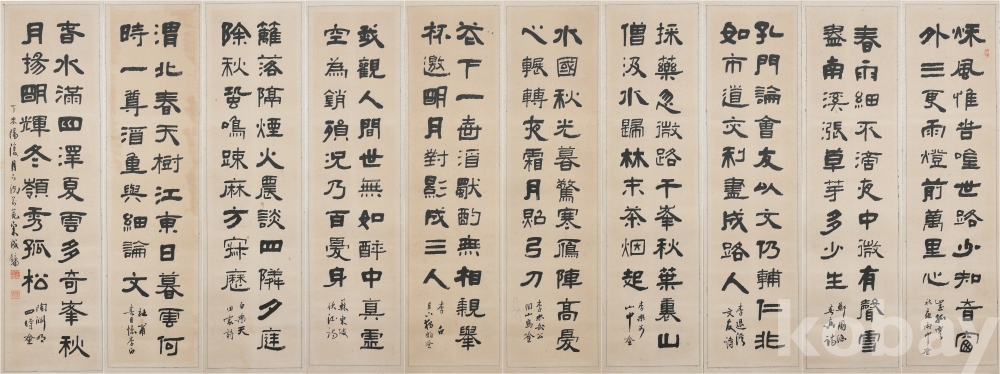 秋風惟苦唫世路少知音窗
外三更雨燈前萬里心
崔孤雲
秋夜雨中吟
春雨細不滴夜中微有聲雪
盡南溪漲草芽多少生
鄭圃隱
春雨詩
孔門論會友以文仍輔仁非
如市道交利盡成路人
李退溪
文友詩
採藥忽迷路千峯秋葉裏山
僧汲水歸林末茶烟起
李栗谷
山中吟
水國秋光暮驚寒鴈陣高憂
心輾轉夜霜月照弓刀
李忠武公
閑山島吟
花下一壺酒獨酌無相親舉
杯邀明月對影成三人
李白
我觀人間世無如醉中真虛
空為銷殞況乃百憂身
蘇東坡
飲酒詩
籬落隔煙火農談四隣夕庭
除秋蛩鳴疎麻方寂歷
白樂天
田家詩
渭北春天樹江東日暮雲何
時一尊酒重與細論文
杜甫
春日憶李白
春水滿四澤夏雲多奇峯秋
月揚明輝冬嶺秀孤松
陶淵明
四時吟
丁未
kobay